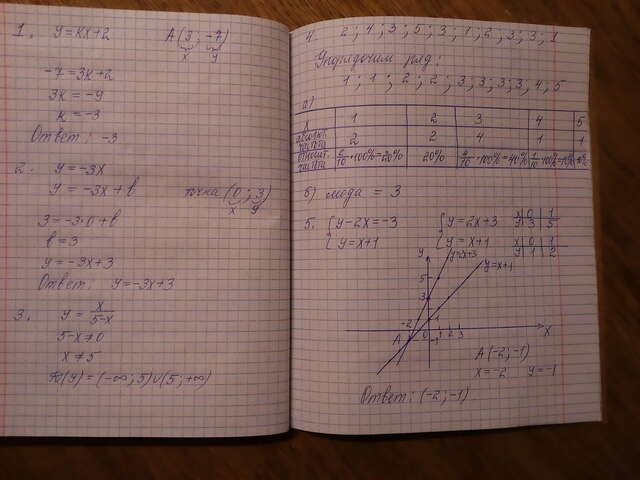 1. y = kx+2 A(3; -7)
x y
-7 = 3k+2
3k = -9
k = -3
Ответ: -3
2. y = -3x
y = -3x + b точка (0; 3)
x y
3 = -3·0 + b
b = 3
y = -3x+3
Ответ: y = -3x+3
3. y = x/(5-x)
5-x ≠ 0
x ≠ 5
D(y) = (-∞; 5) ∪ (5; +∞)
4. 2; 4; 3; 5; 3; 1; 2; 3; 3; 1
Упорядочим ряд:
1; 1; 2; 2; 3; 3; 3; 3; 4; 5
а)
X 1 2 3 4 5
абсолют. частота 2 2 4 1 1
относит. частота 2/10·100%=20% 20% 4/10·100%=40% 1/10·100%=10% 10%
б) мода = 3
5. { y-2x=-3 { y=2x+3 x 0 1
y 3 5
{ y=x+1 { y=x+1 x 0 1
y 1 2
y y=2x+3 y=x+1
5
3
1
-2 0 1 2 3 x
A -1
A(-2; -1)
x=-2 y=-1
Ответ: (-2; -1)